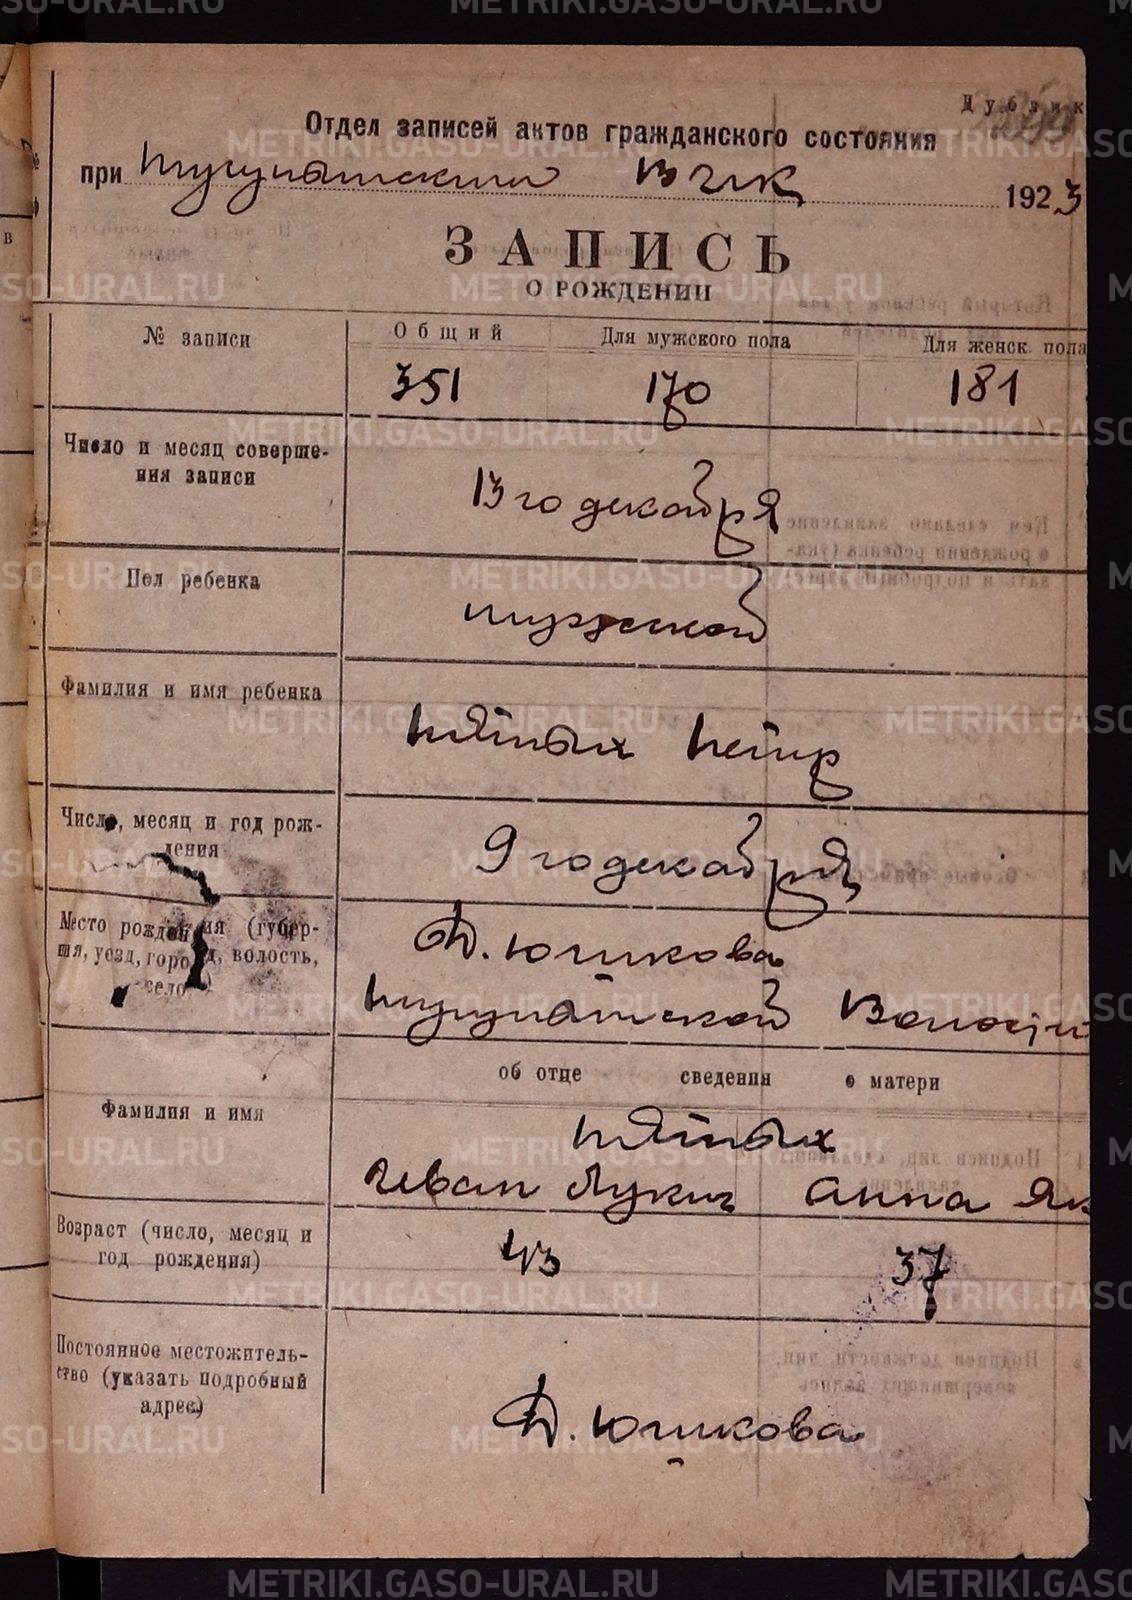 METRIKI.GASO-URAL.RU
Дублик
Отдел записей актов гражданского состояния
при Тугулымском ВИК 1923
ЗАПИСЬ
О РОЖДЕНИИ
№ записи
Общий
Для мужского пола
Для женск. пола
351
170
181
Число и месяц соверше-
ния записи
13го декабря
Пол ребенка
мужской
Фамилия и имя ребенка
Пятых Петр
Число, месяц и год рож-
дения
9 го декабря
Место рождения (губер-
ния, уезд, город, волость,
село)
Д. Юшкова
волости
об отце
сведения
о матери
Фамилия и имя
Пятых
Иван Лукич
Анна Як
Возраст (число, месяц и
год рождения)
43
37
Постоянное местожитель-
ство (указать подробный
адрес)
Д. Юшкова